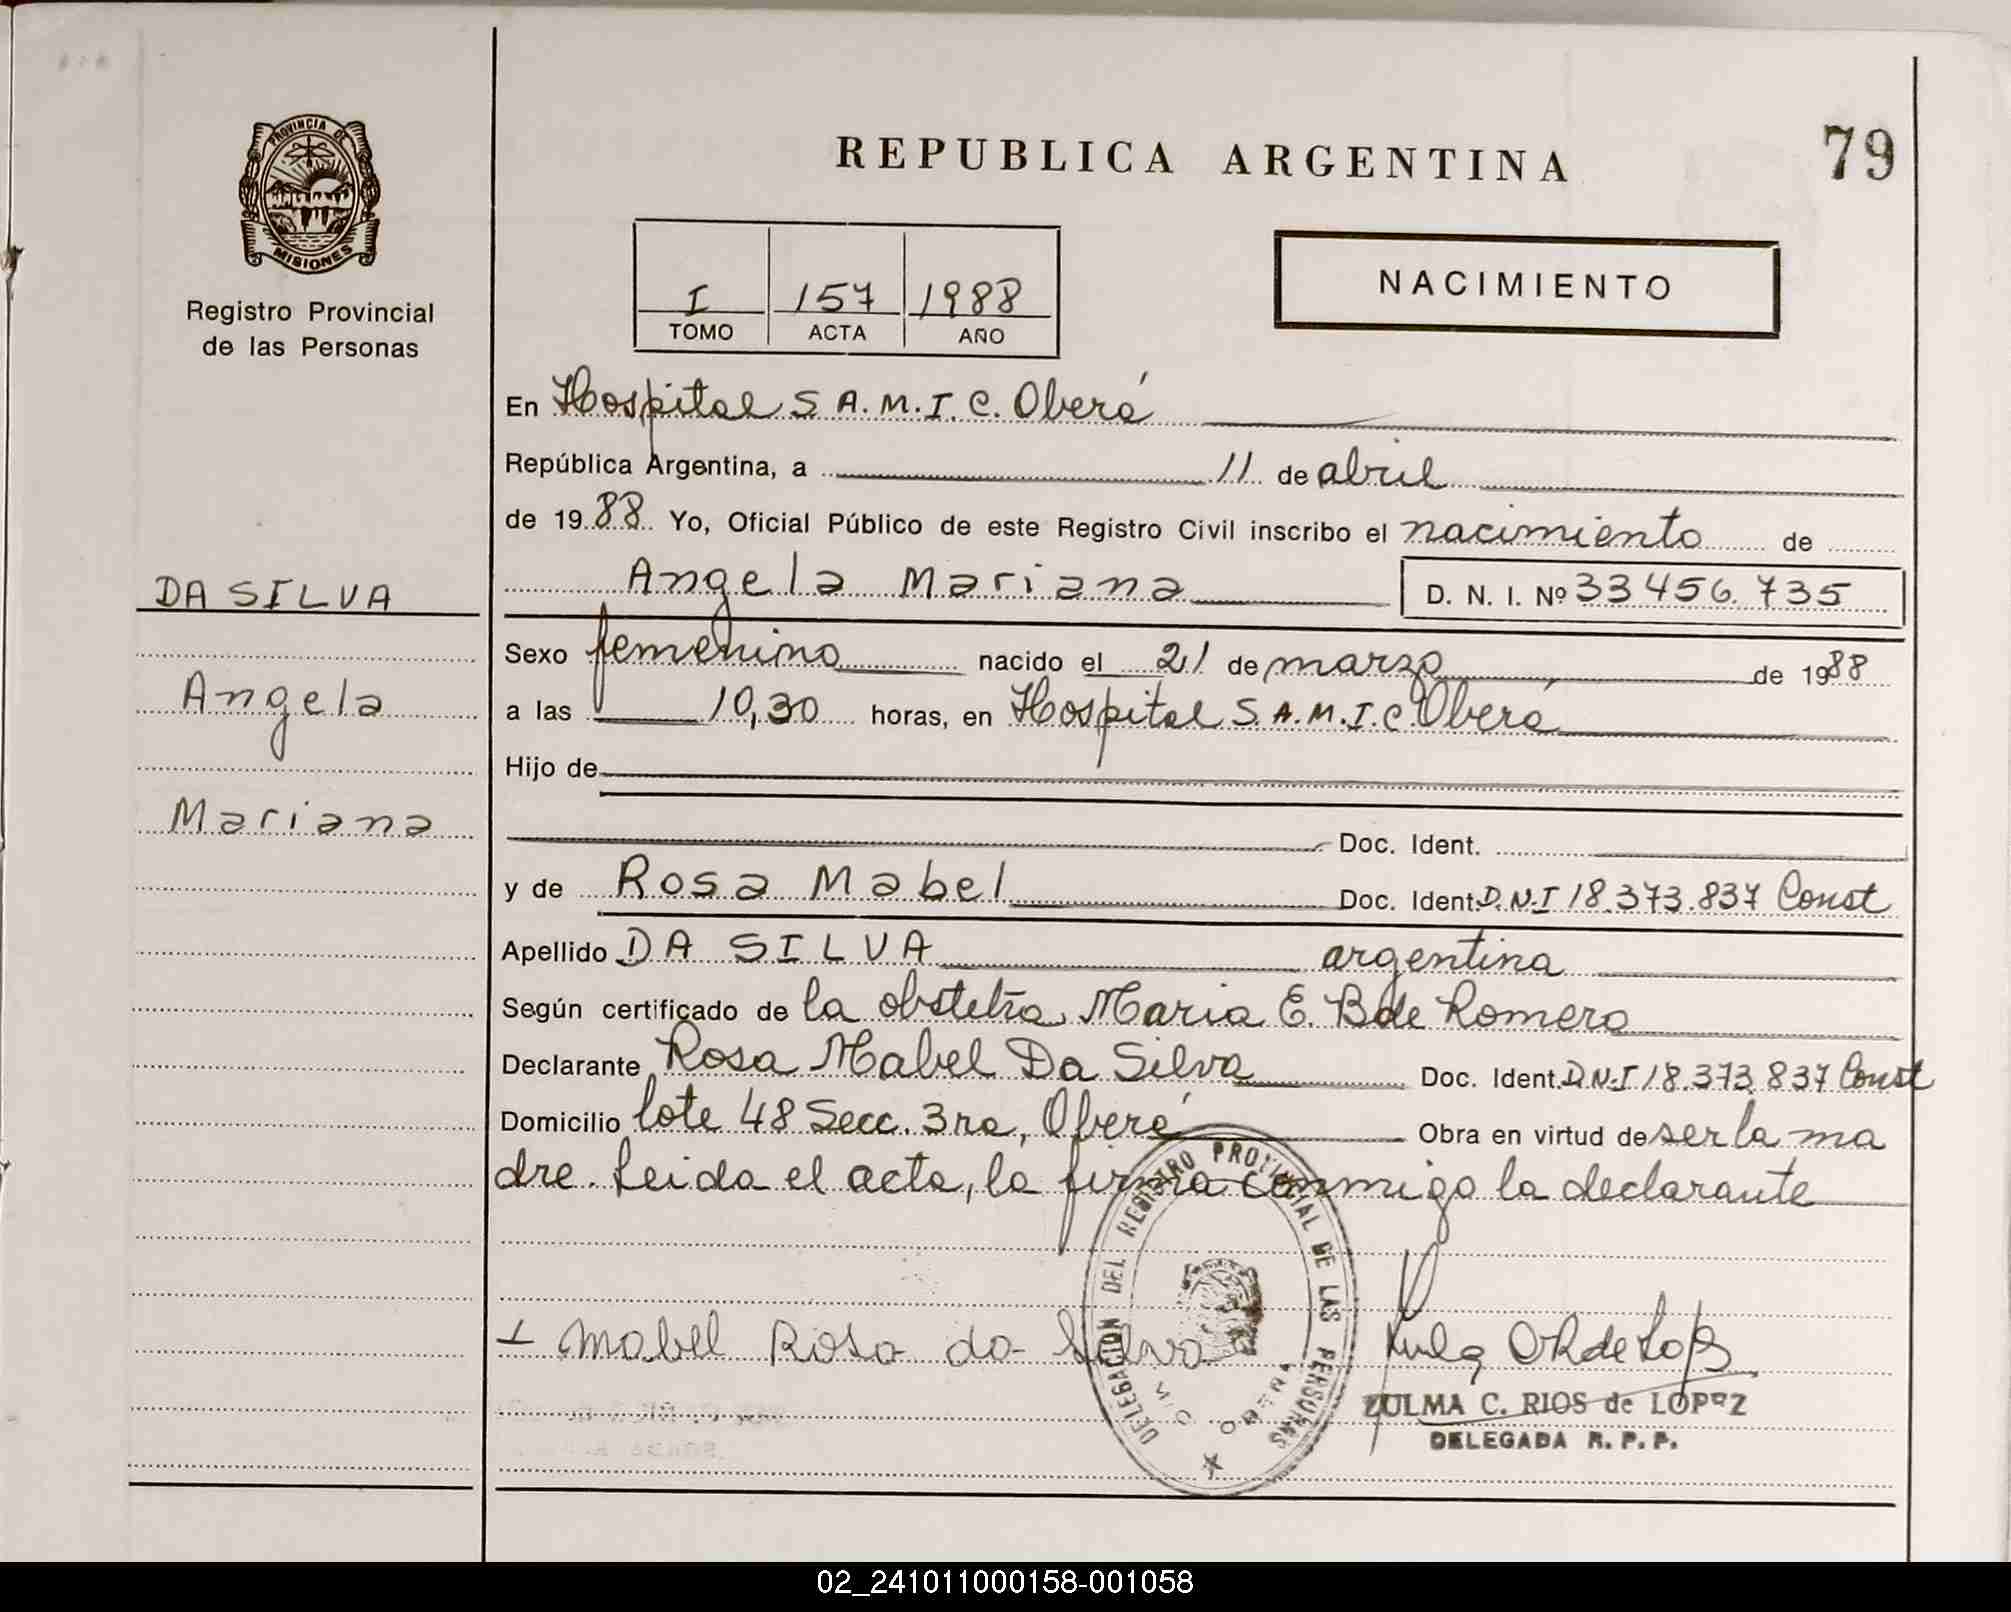 PROVINCIA DE
MISIONES
Registro Provincial
de las Personas
REPUBLICA ARGENTINA
79
I 157 1988
TOMO ACTA AÑO
NACIMIENTO
En Hospital S A.M.I.C. Oberá
República Argentina, a 11 de abril
de 1988 Yo, Oficial Público de este Registro Civil inscribo el nacimiento de
DA SILVA
Angela Mariana D. N. I. Nº 33 456.735
Sexo femenino nacido el 21 de marzo de 1988
Angela
a las 10,30 horas, en Hospital S.A.M.I.C. Oberá
Hijo de
Mariana
Doc. Ident.
y de Rosa Mabel Doc. Ident. D.N.I 18.373.837 Const
Apellido DA SILVA argentina
Según certificado de la obstetra Maria E. B de Romero
Declarante Rosa Mabel Da Silva Doc. Ident. D.N.I 18.373.837 Const
Domicilio lote 48 Secc. 3ra, Oberá Obra en virtud de ser la ma
dre. Leida el acta, la firma conmigo la declarante
DELEGACION DEL REGISTRO PROVINCIAL DE LAS PERSONAS
OBERA
Mabel Rosa da Silva
ZULMA C. RIOS de LOPEZ
DELEGADA R. P. P.
02_241011000158-001058